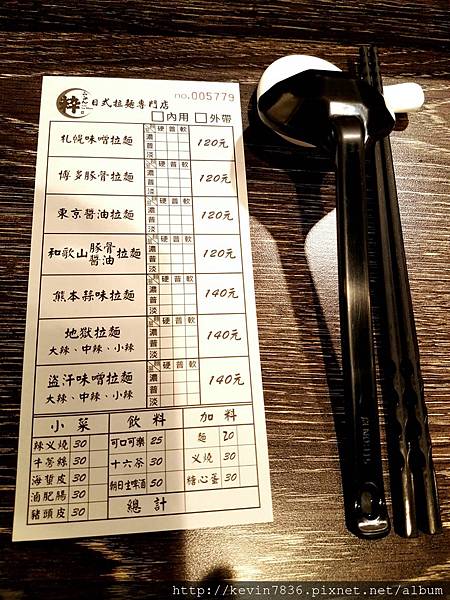 粹 日式拉麵專門店 no.005779
□內用 □外帶
硬 普 軟
札幌味噌拉麵 濃 普 淡 120元
硬 普 軟
博多豚骨拉麵 濃 普 淡 120元
硬 普 軟
東京醬油拉麵 濃 普 淡 120元
硬 普 軟
和歌山豚骨醬油拉麵 濃 普 淡 120元
硬 普 軟
熊本蒜味拉麵 濃 普 淡 140元
硬 普 軟
地獄拉麵 濃 普 淡 140元
大辣、中辣、小辣
硬 普 軟
盜汗味噌拉麵 濃 普 淡 140元
大辣、中辣、小辣
小菜 飲料 加料
辣叉燒 30 可口可樂 25 麵 20
牛蒡絲 30 十六茶 30 叉燒 30
海蜇皮 30 朝日生啤酒 50 糖心蛋 30
滷肥腸 30 總計
豬頭皮 30
http://kevin7836.pixnet.net/album